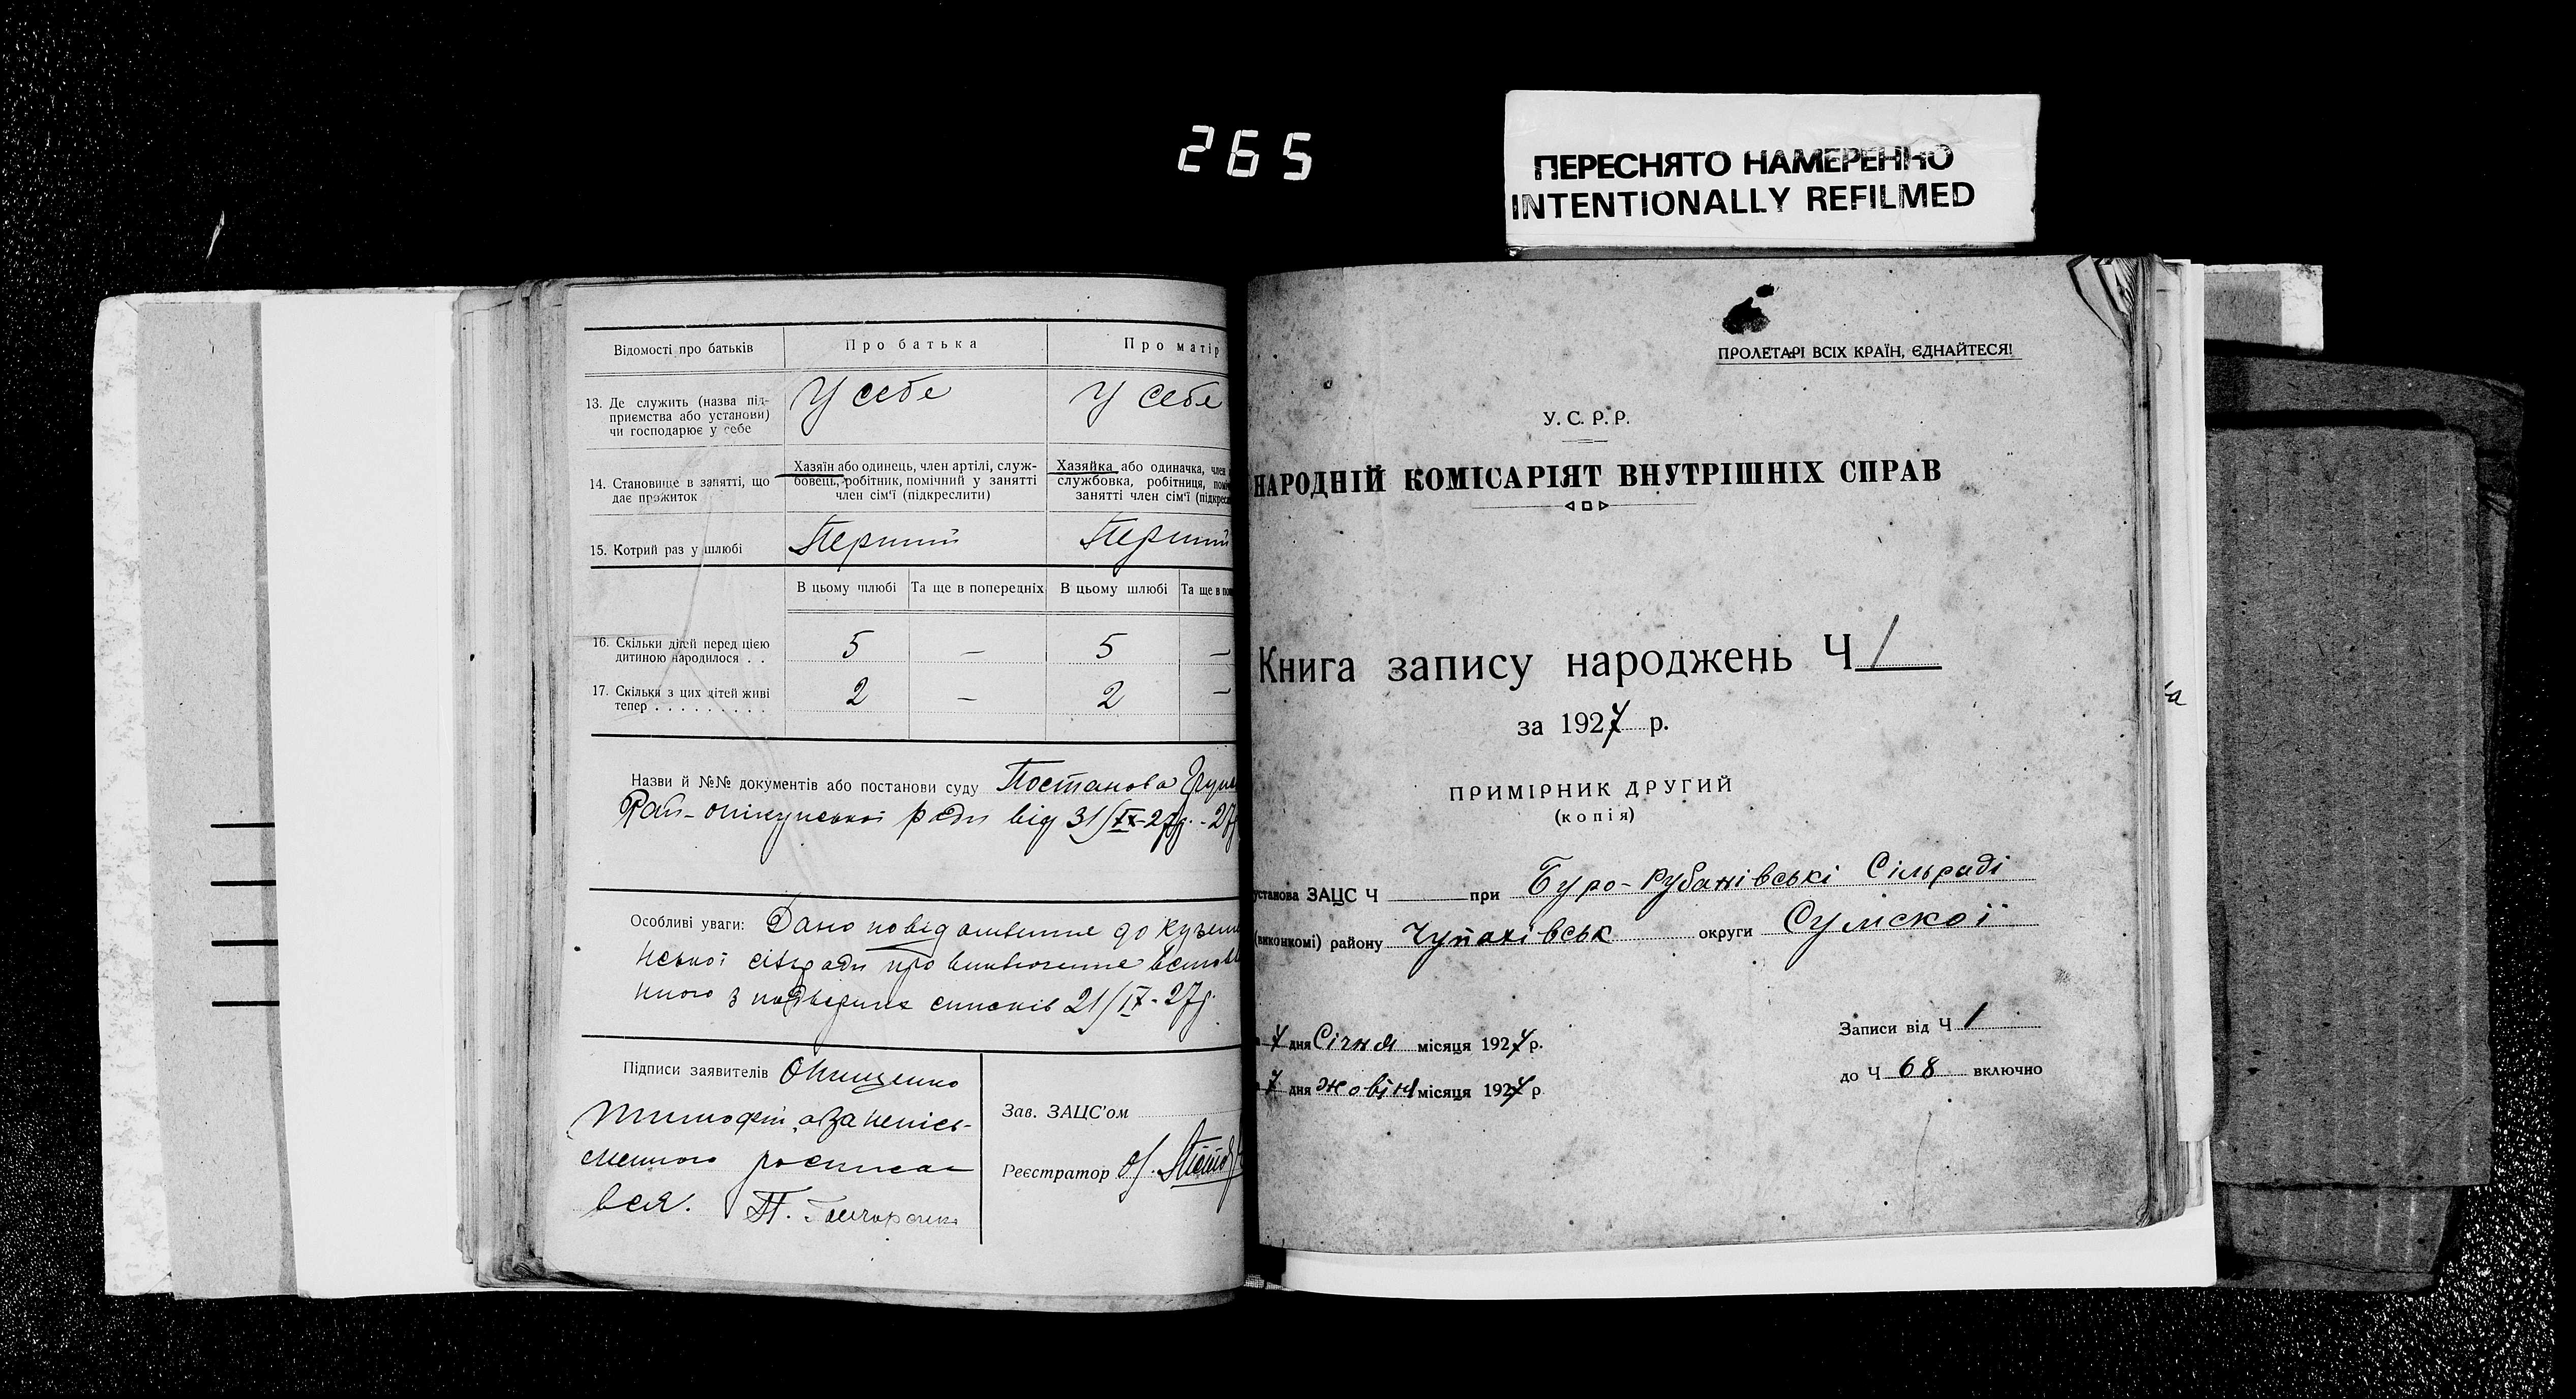 265
ПЕРЕСНЯТО НАМЕРЕННО
INTENTIONALLY REFILMED
Відомості про батьків
Про батька
Про матір
13. Де служить (назва під-
приємства або установи)
чи господарює у себе
У себе
У себе
14. Становище в занятті, що
дає прожиток
Хазяїн або одинець, член артілі, служ-
бовець, робітник, помічний у занятті
член сім'ї (підкреслити)
Хазяйка або одиначка, член
службовка, робітниця,
занятті член сім'ї
15. Котрий раз у шлюбі
Перший
Перший
В цьому шлюбі
Та ще в попередніх
В цьому шлюбі
Та ще в
16. Скільки дітей перед цією
дитиною народилося . .
5 — 5 —
17. Скільки з цих дітей живі
тепер . . . . . . . . .
2 — 2 —
Назви й №№ документів або постанови суду Постанова
Рай-опікунської ради від 31/IX-27р.
Особливі уваги: Дано повідомлення до
сільради про виключення
з списків 21/IX-27р.
Підписи заявителів Онищенко
Тимофій, а за непісь-
менного росписа-
вся. П. Гончаренко
Зав. ЗАЦС'ом
Реєстратор
ПРОЛЕТАРІ ВСІХ КРАЇН, ЄДНАЙТЕСЯ!
У.С.Р.Р.
НАРОДНІЙ КОМІСАРІЯТ ВНУТРІШНІХ СПРАВ
Книга запису народжень Ч 1
за 1927 р.
ПРИМІРНИК ДРУГИЙ
(копія)
установа ЗАЦС Ч при Буро-Рубанівські Сільраді
(виконкомі) району Чупахівськ округи Сумскої
7 дня Січня місяця 1927 р.
7 дня жовтня місяця 1927 р
Записи від Ч 1
до Ч 68 включно